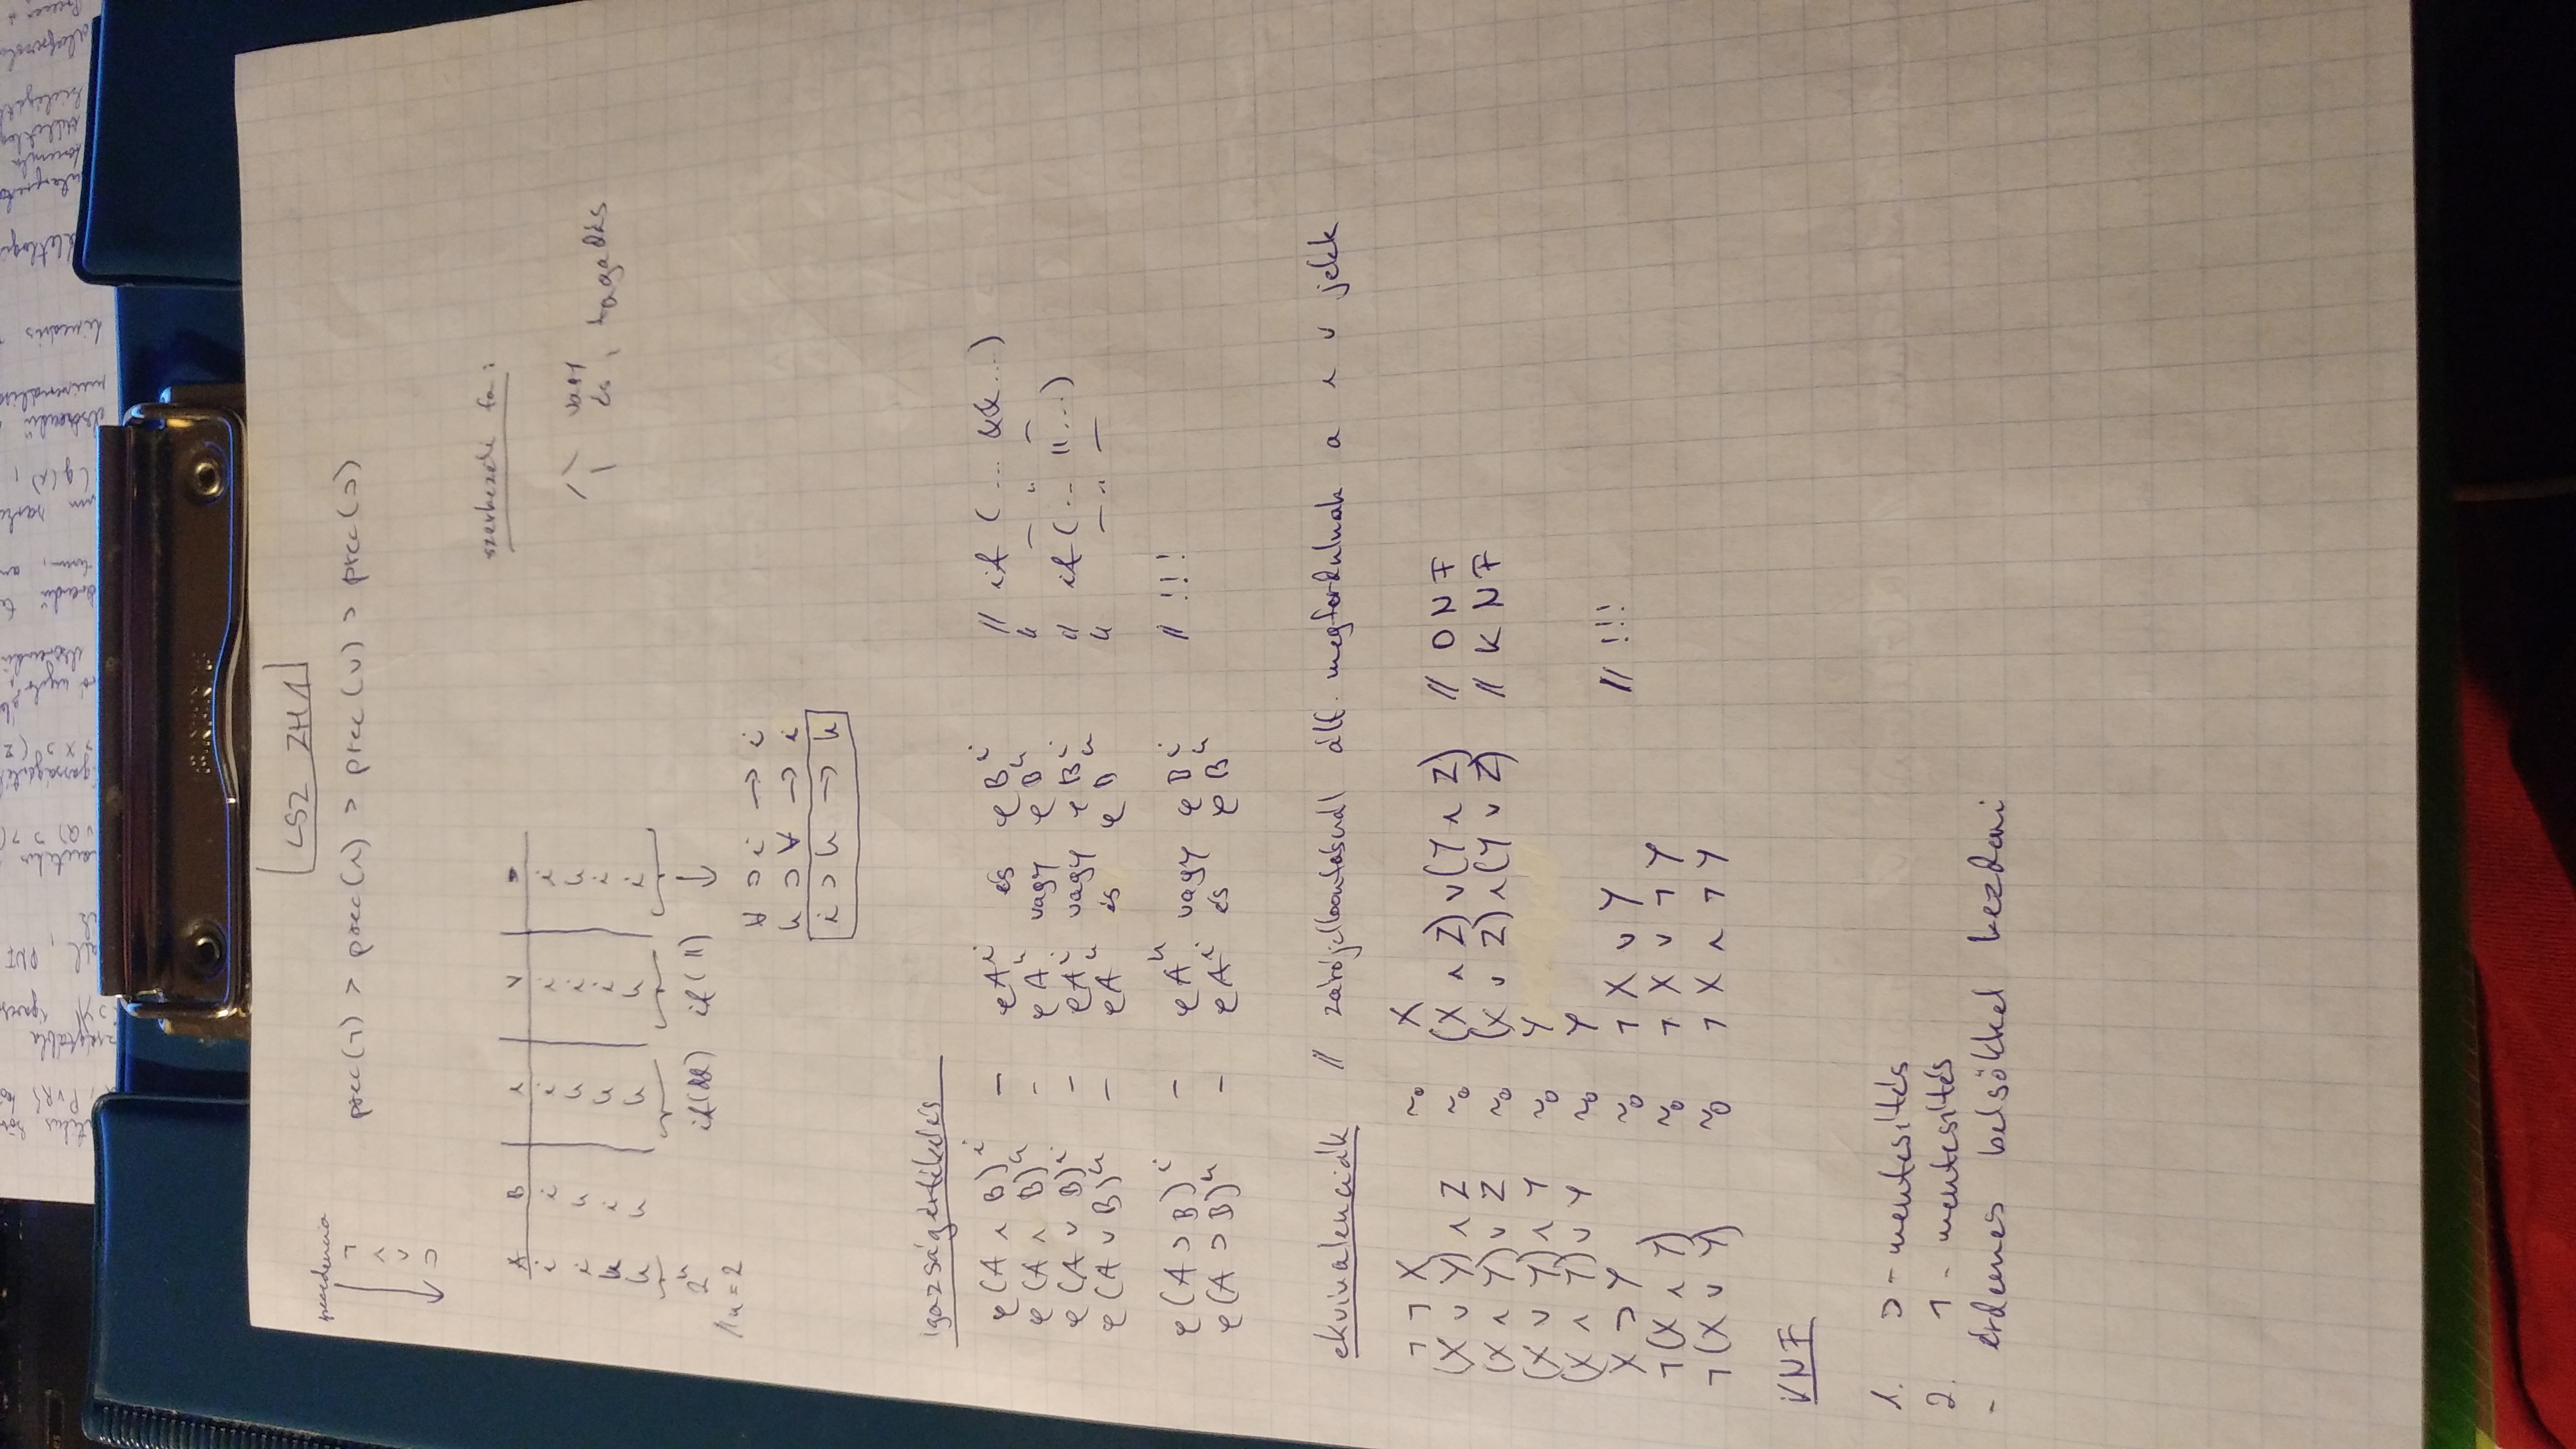 LSZ ZH1
precedencia
¬
∧
∨
⊃
prec(¬) > prec(∧) > prec(∨) > prec(⊃)
szerkezeti fa:
vagy
és, tagadás
A B ∧ ∨ ⊃
i i i i i
i h h i h
h i h i i
h h h h i
2ⁿ if(&&) if(||) ↓
// n = 2
∀ ⊃ i → i
h ⊃ ∀ → i
i ⊃ h → h
igazságértékelés
φ(A ∧ B)ⁱ - φAⁱ és φBⁱ // if (... &&...)
φ(A ∧ B)ʰ - φAʰ vagy φBʰ // — " —
φ(A ∨ B)ⁱ - φAⁱ vagy φBⁱ // if (... ||...)
φ(A ∨ B)ʰ - φAʰ és φBʰ // — " —
φ(A ⊃ B)ⁱ - φAʰ vagy φBⁱ // !!!
φ(A ⊃ B)ʰ - φAⁱ és φBʰ
ekvivalenciák // zárójelbontásnál ált. megfordulnak a ∧ ∨ jelek
¬¬X ~₀ X
(X ∨ Y) ∧ Z ~₀ (X ∧ Z) ∨ (Y ∧ Z) // DNF
(X ∧ Y) ∨ Z ~₀ (X ∨ Z) ∧ (Y ∨ Z) // KNF
(X ∨ Y) ∧ Y ~₀ Y
(X ∧ Y) ∨ Y ~₀ Y
X ⊃ Y ~₀ ¬X ∨ Y // !!!
¬(X ∧ Y) ~₀ ¬X ∨ ¬Y
¬(X ∨ Y) ~₀ ¬X ∧ ¬Y
KNF
1. ⊃ - mentesítés
2. ¬ - mentesítés
- érdemes belsőkkel kezdeni